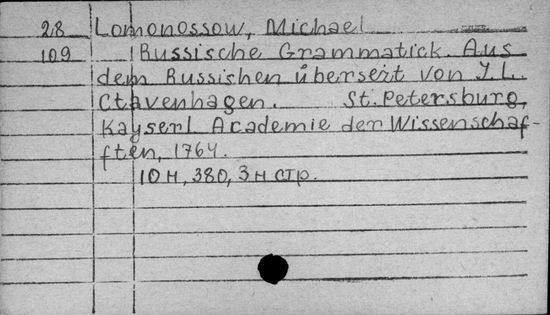 28 Lomonossow, Michael
109 Russische Grammatick. Aus
dem Russishen übersezt von J. L.
Ctavenhagen. St. Petersburg,
Kayserl Academie der Wissenschaf-
ften, 1764.
10 н, 380, 3 н стр.